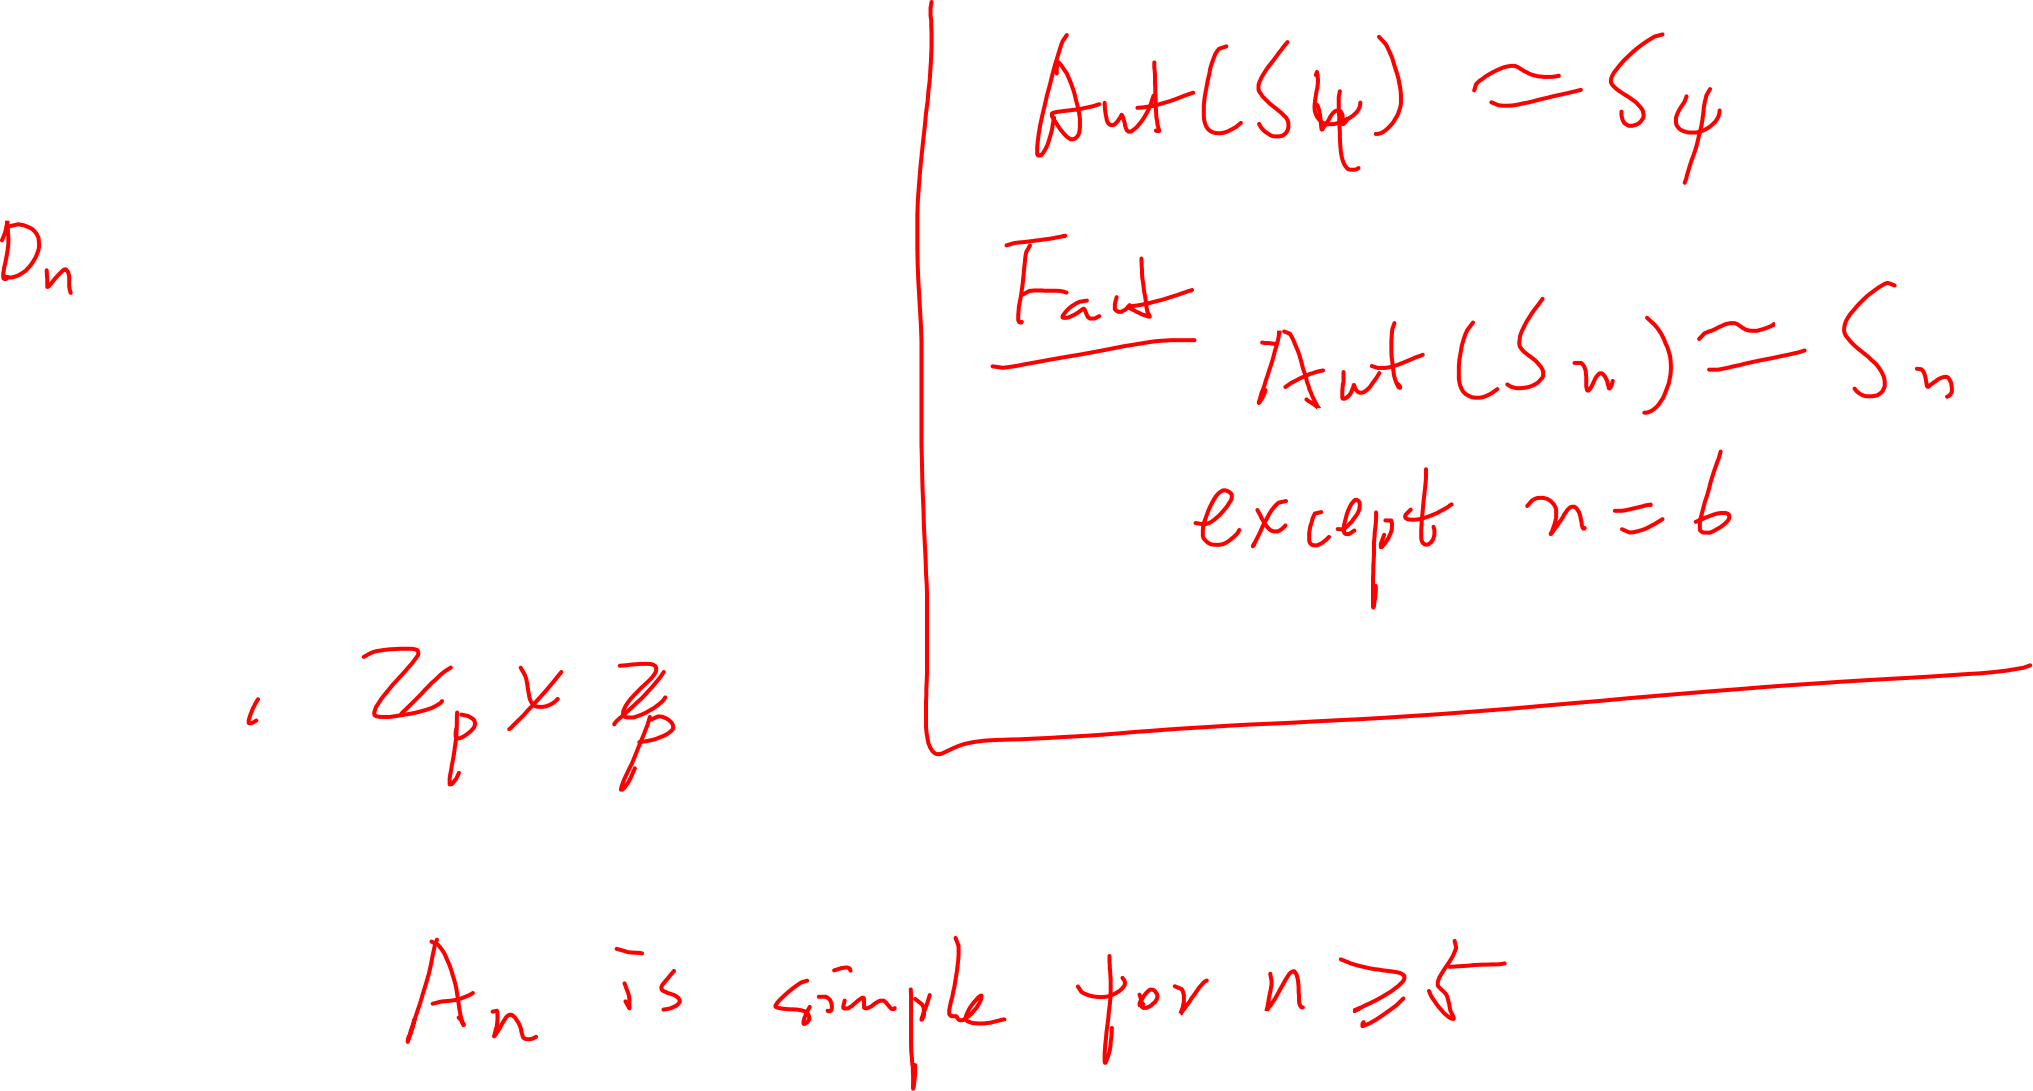 Aut(S4) ≃ S4
Dn
Fact
Aut(Sn) ≃ Sn
except n=6
, Zp × Zp
An is simple for n ⩾ 5